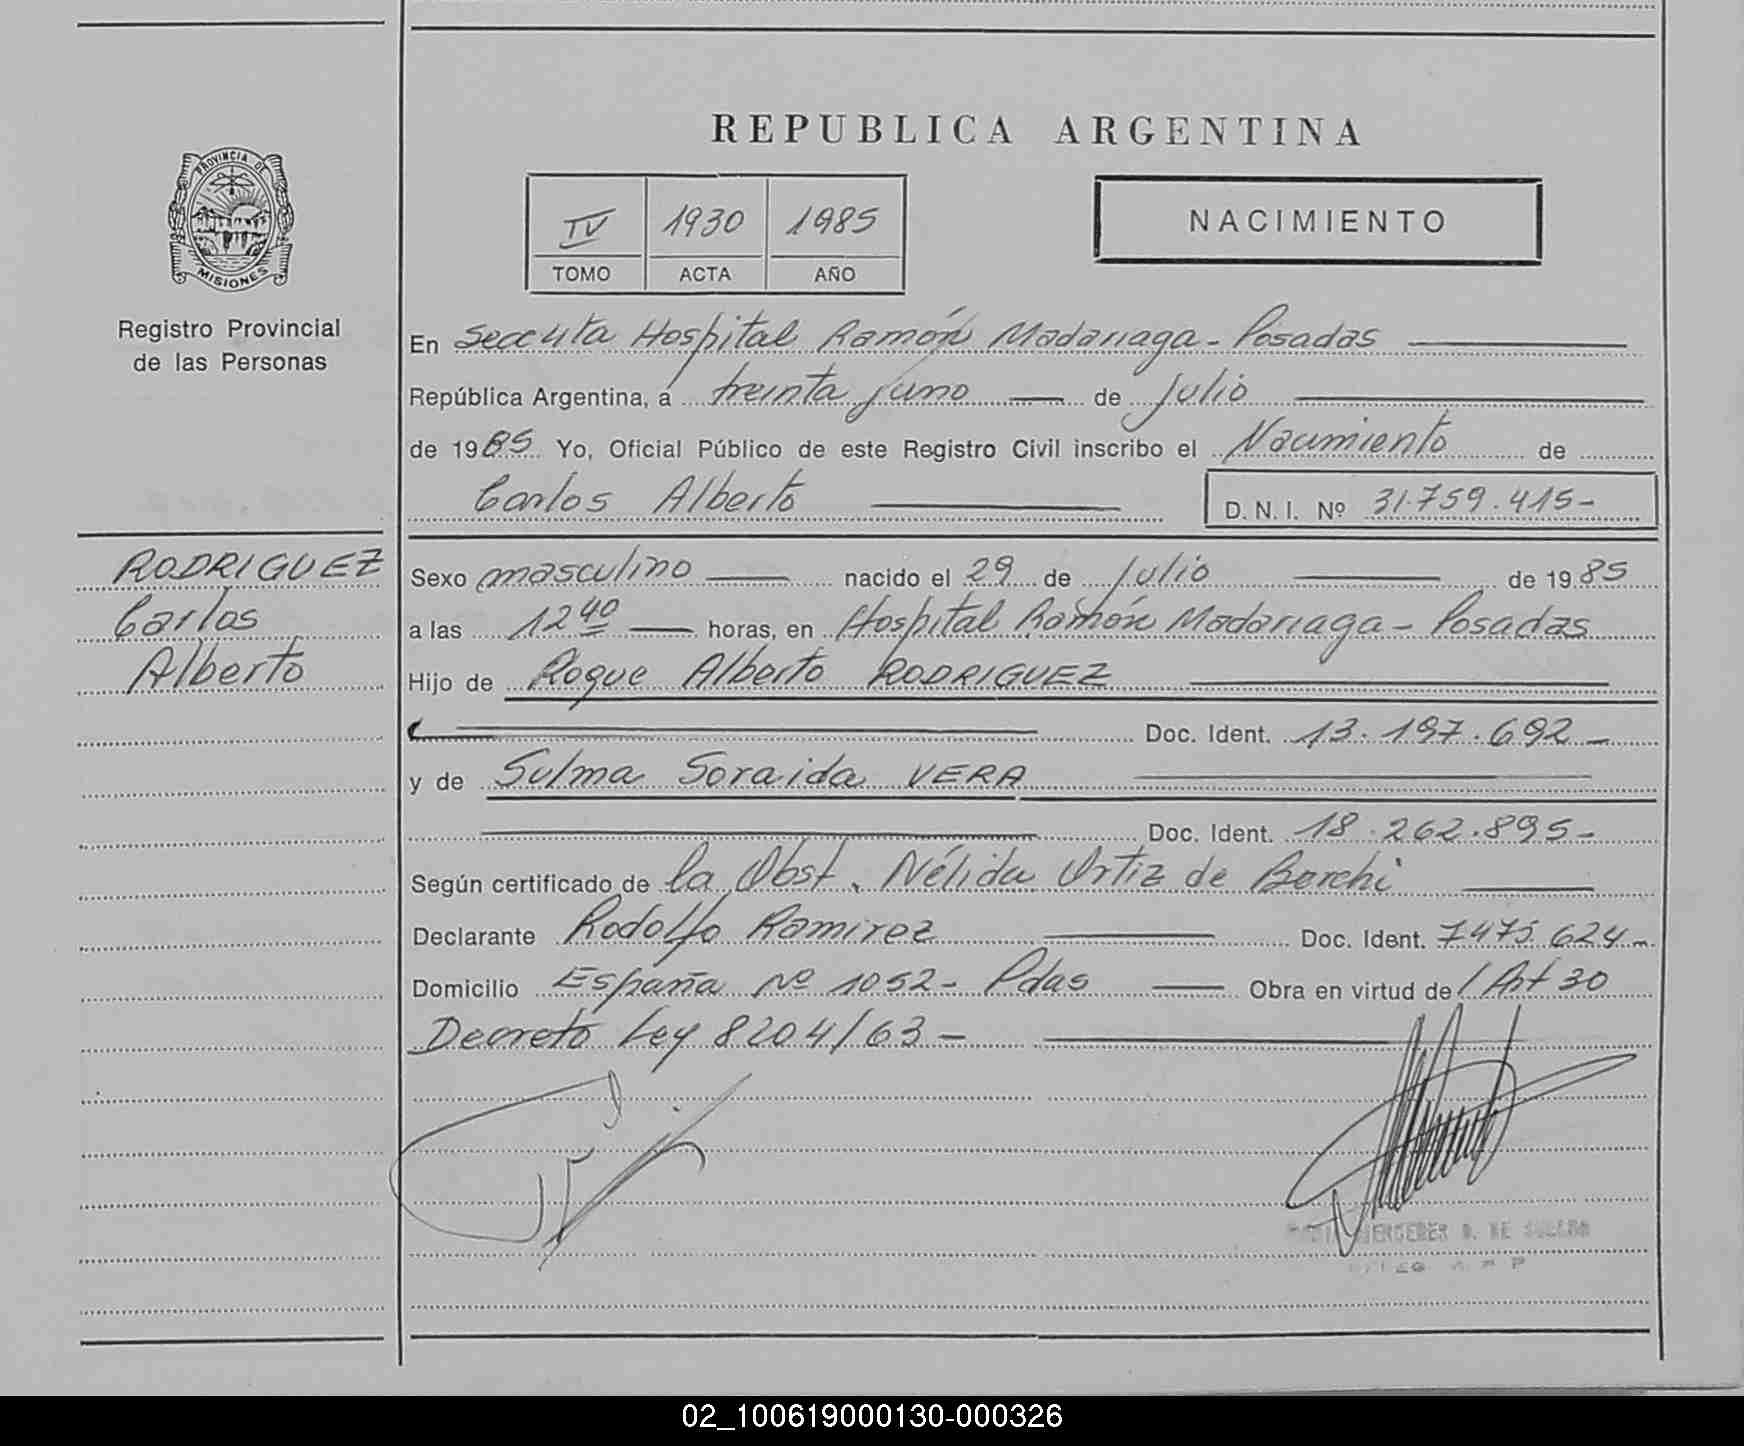 REPUBLICA ARGENTINA
PROVINCIA DE
MISIONES
Registro Provincial
de las Personas
IV 1930 1985
TOMO ACTA AÑO
NACIMIENTO
En Hospital Ramón Madariaga - Posadas
República Argentina, a treinta y uno de Julio
de 1985 Yo, Oficial Público de este Registro Civil inscribo el Nacimiento de
Carlos Alberto D. N. I. Nº 31.759.415-
RODRIGUEZ
Carlos
Alberto
Sexo masculino nacido el 29 de Julio de 1985
a las 12 40 horas, en Hospital Ramón Madariaga - Posadas
Hijo de Roque Alberto RODRIGUEZ
Doc. Ident. 13.197.692-
y de Sulma Soraida VERA
Doc. Ident. 18.262.895-
Según certificado de la Obst. Nélida Ortiz de Borchi
Declarante Rodolfo Ramirez Doc. Ident. 7475624-
Domicilio España Nº 1052- Pdas Obra en virtud de / Art 30
Decreto Ley 8204/63-
MERCEDES DE
02_100619000130-000326